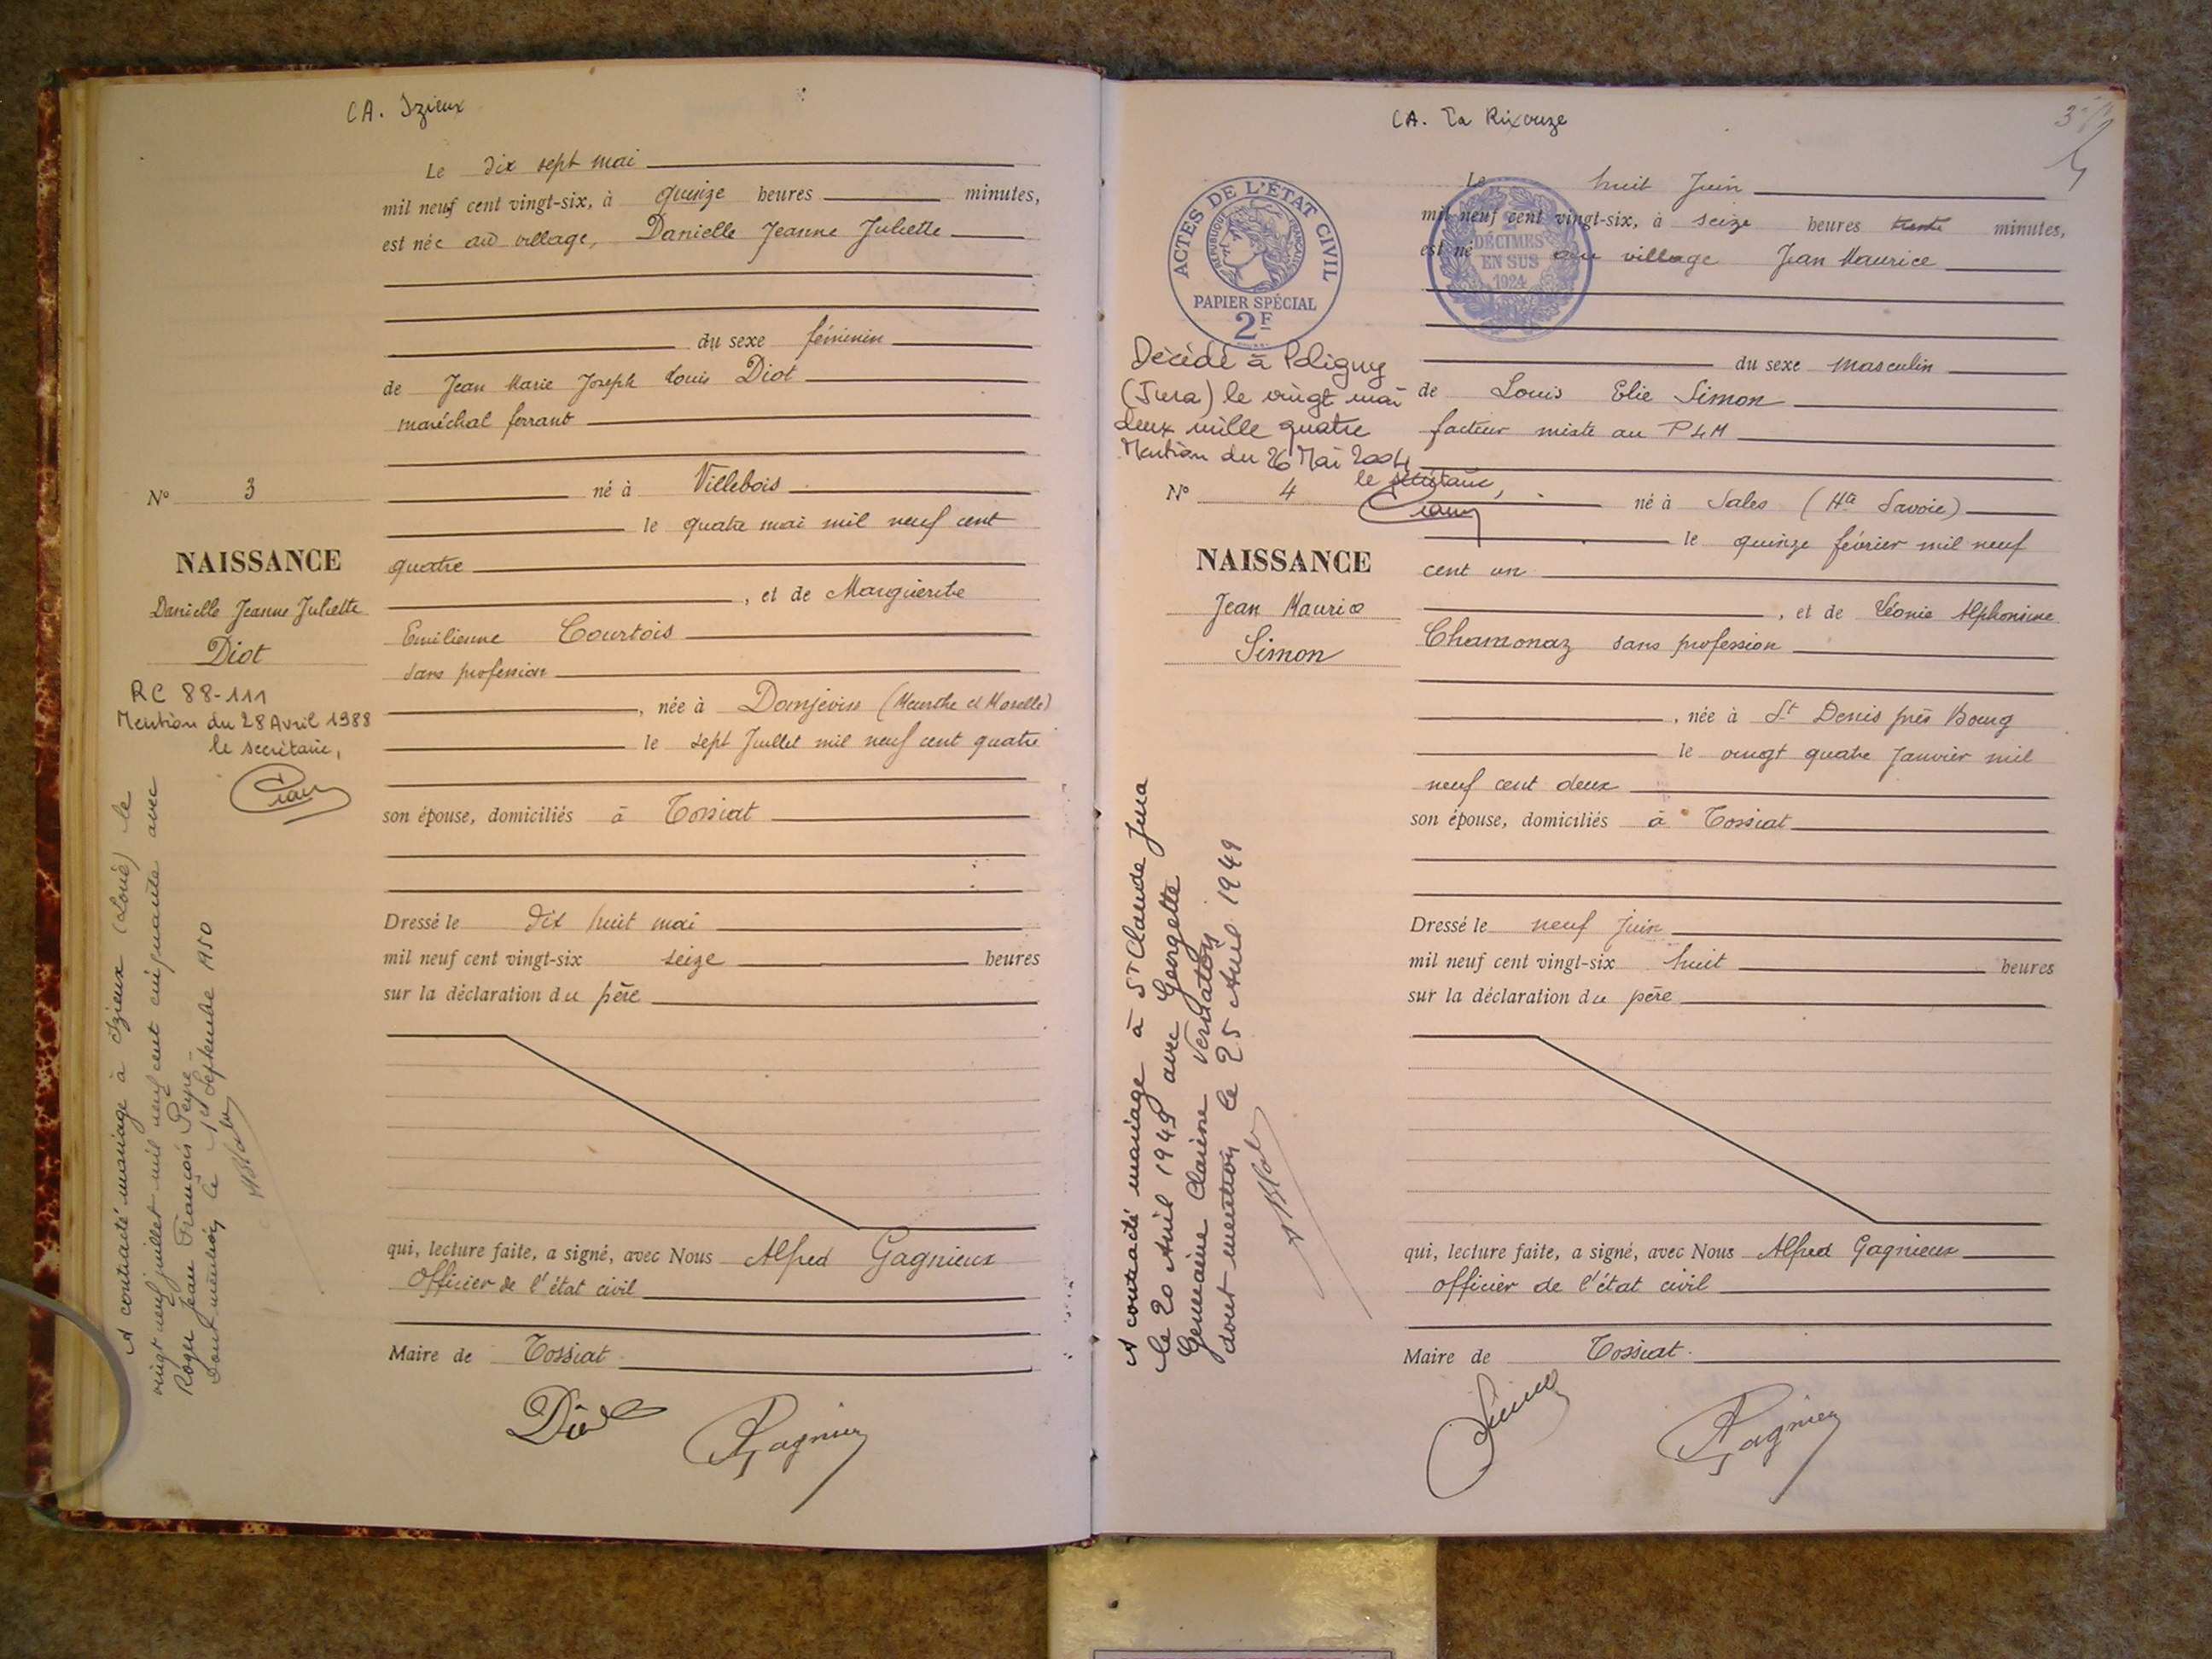 CA. Izieux
Le dix sept mai
mil neuf cent vingt-six, à quinze heures minutes,
est née au village, Danielle Jeanne Juliette
du sexe féminin
de Jean Marie Joseph Louis Diot
maréchal ferrant
né à Villebois
le quatre mai mil neuf cent
quatre
, et de Marguerite
Emilienne Courtois
sans profession
, née à Domjevin (Meurthe et Moselle)
le sept Juillet mil neuf cent quatre
son épouse, domiciliés à Tossiat
Dressé le dix huit mai
mil neuf cent vingt-six seize heures
sur la déclaration du père
qui, lecture faite, a signé, avec Nous Alfred Gagnieux
Officier de l'état civil
Maire de Tossiat
Diot
Gagnieux
N° 3
NAISSANCE
Danielle Jeanne Juliette
Diot
RC 88-111
Mention du 28 Avril 1988
le secrétaire,
A contracté mariage à Izieux (Loire) le
vingt neuf juillet mil neuf cent cinquante avec
Roger Jean François Peyre.
Dont mention le 1er Septembre 1950
CA. La Rixouze
3
Le huit Juin
mil neuf cent vingt-six, à seize heures trente minutes,
est né au village Jean Maurice
du sexe masculin
de Louis Elie Simon
facteur mixte au PLM
né à Sales (Hte Savoie)
le quinze février mil neuf
cent un
, et de Léonie Alphonsine
Chamonaz sans profession
, née à St Denis près Bourg
le vingt quatre Janvier mil
neuf cent deux
son épouse, domiciliés à Tossiat
Dressé le neuf juin
mil neuf cent vingt-six huit heures
sur la déclaration du père
qui, lecture faite, a signé, avec Nous Alfred Gagnieux
officier de l'état civil
Maire de Tossiat.
Simon
Gagnieux
ACTES DE L'ÉTAT CIVIL
RÉPUBLIQUE FRANÇAISE
PAPIER SPÉCIAL
2F
2
DÉCIMES
EN SUS
1924
Décédé à Poligny
(Jura) le vingt mai
deux mille quatre
Mention du 26 Mai 2004
le secrétaire,
N° 4
NAISSANCE
Jean Maurice
Simon
A contracté mariage à St Claude Jura
le 20 Avril 1949 avec Georgette
Germaine Claire
dont mention le 25 Avril 1949